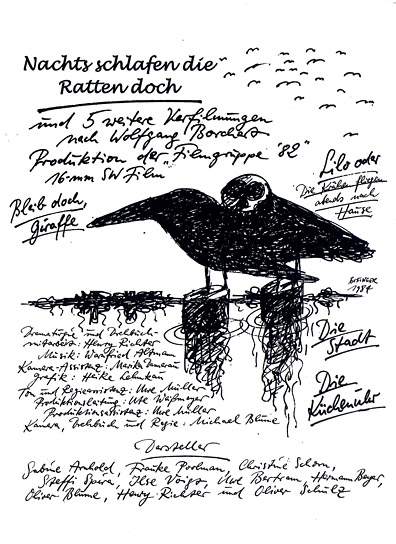 Nachts schlafen die
Ratten doch
und 5 weitere Verfilmungen
nach Wolfgang Borchert
Produktion der "Filmgruppe '82"
16-mm SW Film
Lilo oder
Die Krähen fliegen
abends nach
Hause
Bleib doch,
Giraffe
1984
Die
Stadt
Die
Küchenuhr
Dramaturgie und Drehbuch-
mitarbeit: Henry Richter
Musik: Manfred Altmann
Kamera-Assistenz: Marika
Grafik: Heike Lehmkau
Ton und Regieassistenz: Uwe Müller
Produktionsleitung: Ute
Produktionsassistenz: Uwe Müller
Kamera, Drehbuch und Regie: Michael Blume
Darsteller
Sabine Arnhold, Frauke Poolman, Christine Schorn,
Steffi Spira, Ilse Voigt, Uwe Bertram, Hermann Beyer,
Oliver Blume, Henry Richter und Oliver Schulz